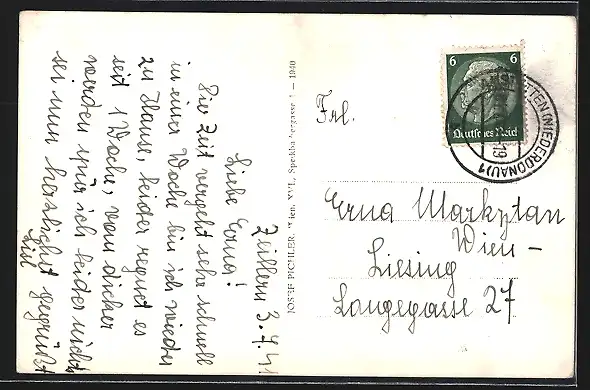 Zeillern 3.7.41
Liebe Erna!
Die Zeit vergeht sehr schnell
in einer Woche bin ich wieder
zu Hause, leider regnet es
seit 1 Woche, von dicher
werden wir ich leider nicht
sei nun herzlichst gegrüßt
Lisl
JOSEF PICHLER, Wien XVI., Speckbachergasse 1940
6 6
Deutsches Reich
(NIEDERDONAU) 1
Frl.
Erna Markytan
Wien-
Liesing
Langegasse 27